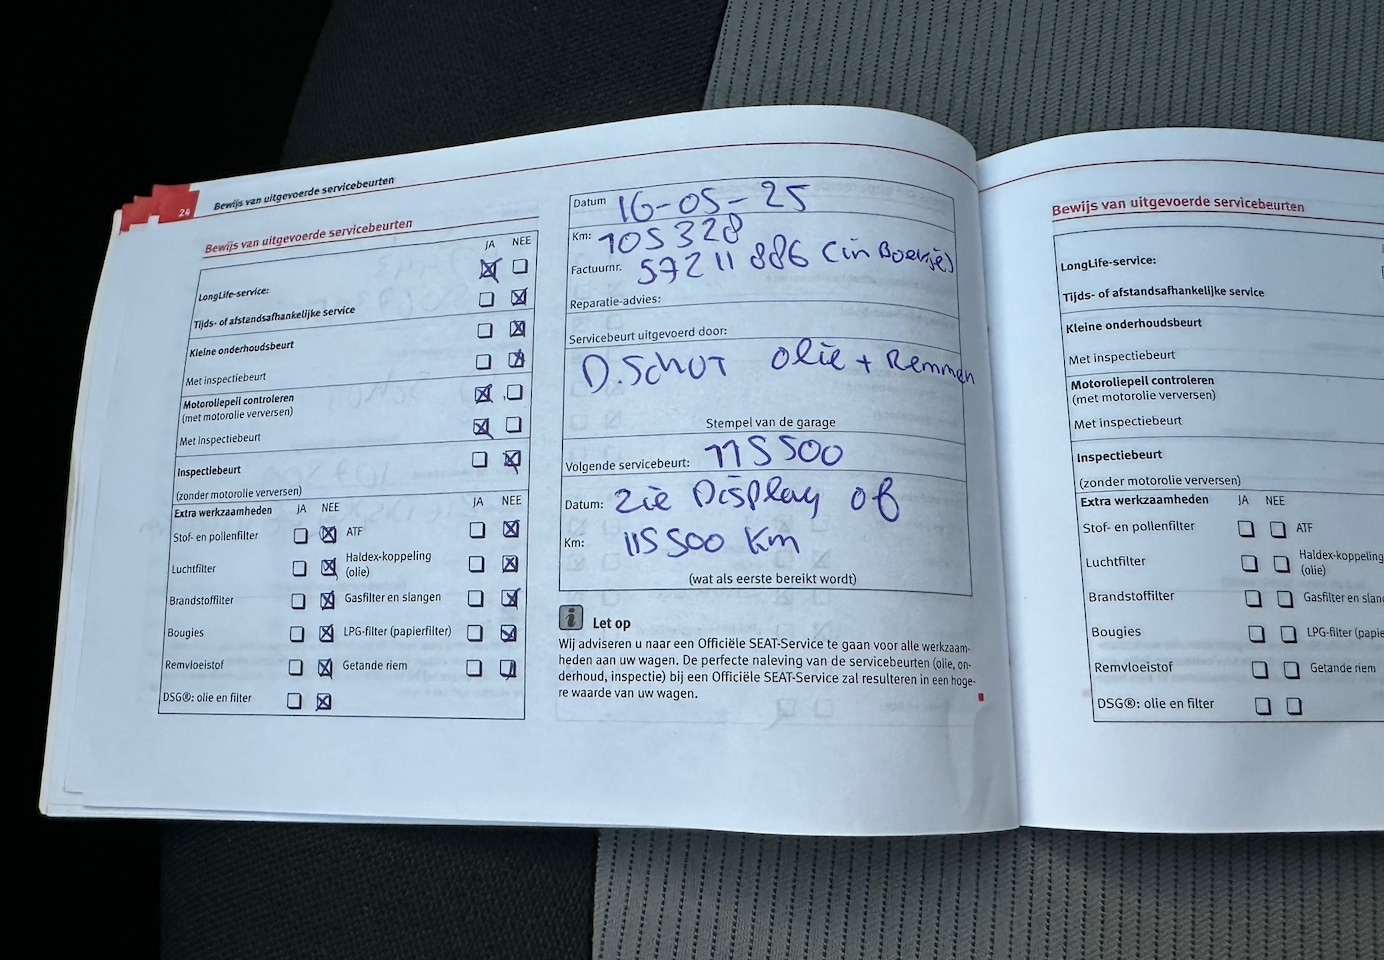 24
Bewijs van uitgevoerde servicebeurten
Bewijs van uitgevoerde servicebeurten
JA NEE
LongLife-service:
Tijds- of afstandsafhankelijke service
Kleine onderhoudsbeurt
Met inspectiebeurt
Motoroliepeil controleren
(met motorolie verversen)
Met inspectiebeurt
Inspectiebeurt
(zonder motorolie verversen)
Extra werkzaamheden JA NEE JA NEE
Stof- en pollenfilter ATF
Luchtfilter Haldex-koppeling
(olie)
Brandstoffilter Gasfilter en slangen
Bougies LPG-filter (papierfilter)
Remvloeistof Getande riem
DSG®: olie en filter
Datum 16-05-25
Km: 105328
Factuurnr. 57211886 (in Boekje)
Reparatie-advies:
Servicebeurt uitgevoerd door:
D.Schut olie + Remmen
Stempel van de garage
Volgende servicebeurt: 115500
Datum: zie Display of
Km: 115500 km
(wat als eerste bereikt wordt)
i Let op
Wij adviseren u naar een Officiële SEAT-Service te gaan voor alle werkzaam-
heden aan uw wagen. De perfecte naleving van de servicebeurten (olie, on-
derhoud, inspectie) bij een Officiële SEAT-Service zal resulteren in een hoge-
re waarde van uw wagen.
Bewijs van uitgevoerde servicebeurten
LongLife-service:
Tijds- of afstandsafhankelijke service
Kleine onderhoudsbeurt
Met inspectiebeurt
Motoroliepeil controleren
(met motorolie verversen)
Met inspectiebeurt
Inspectiebeurt
(zonder motorolie verversen)
Extra werkzaamheden JA NEE
Stof- en pollenfilter ATF
Luchtfilter Haldex-koppeling
(olie)
Brandstoffilter Gasfilter en slang
Bougies LPG-filter (papie
Remvloeistof Getande riem
DSG®: olie en filter